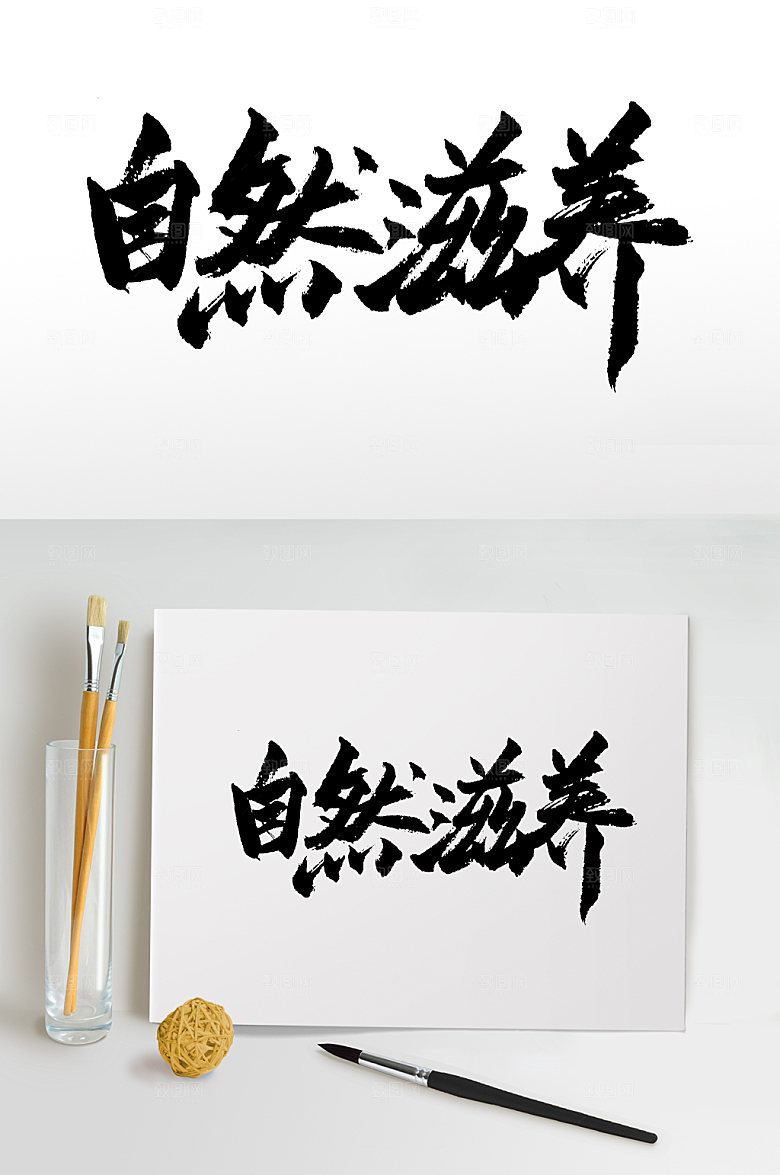 自然滋养
自然滋养